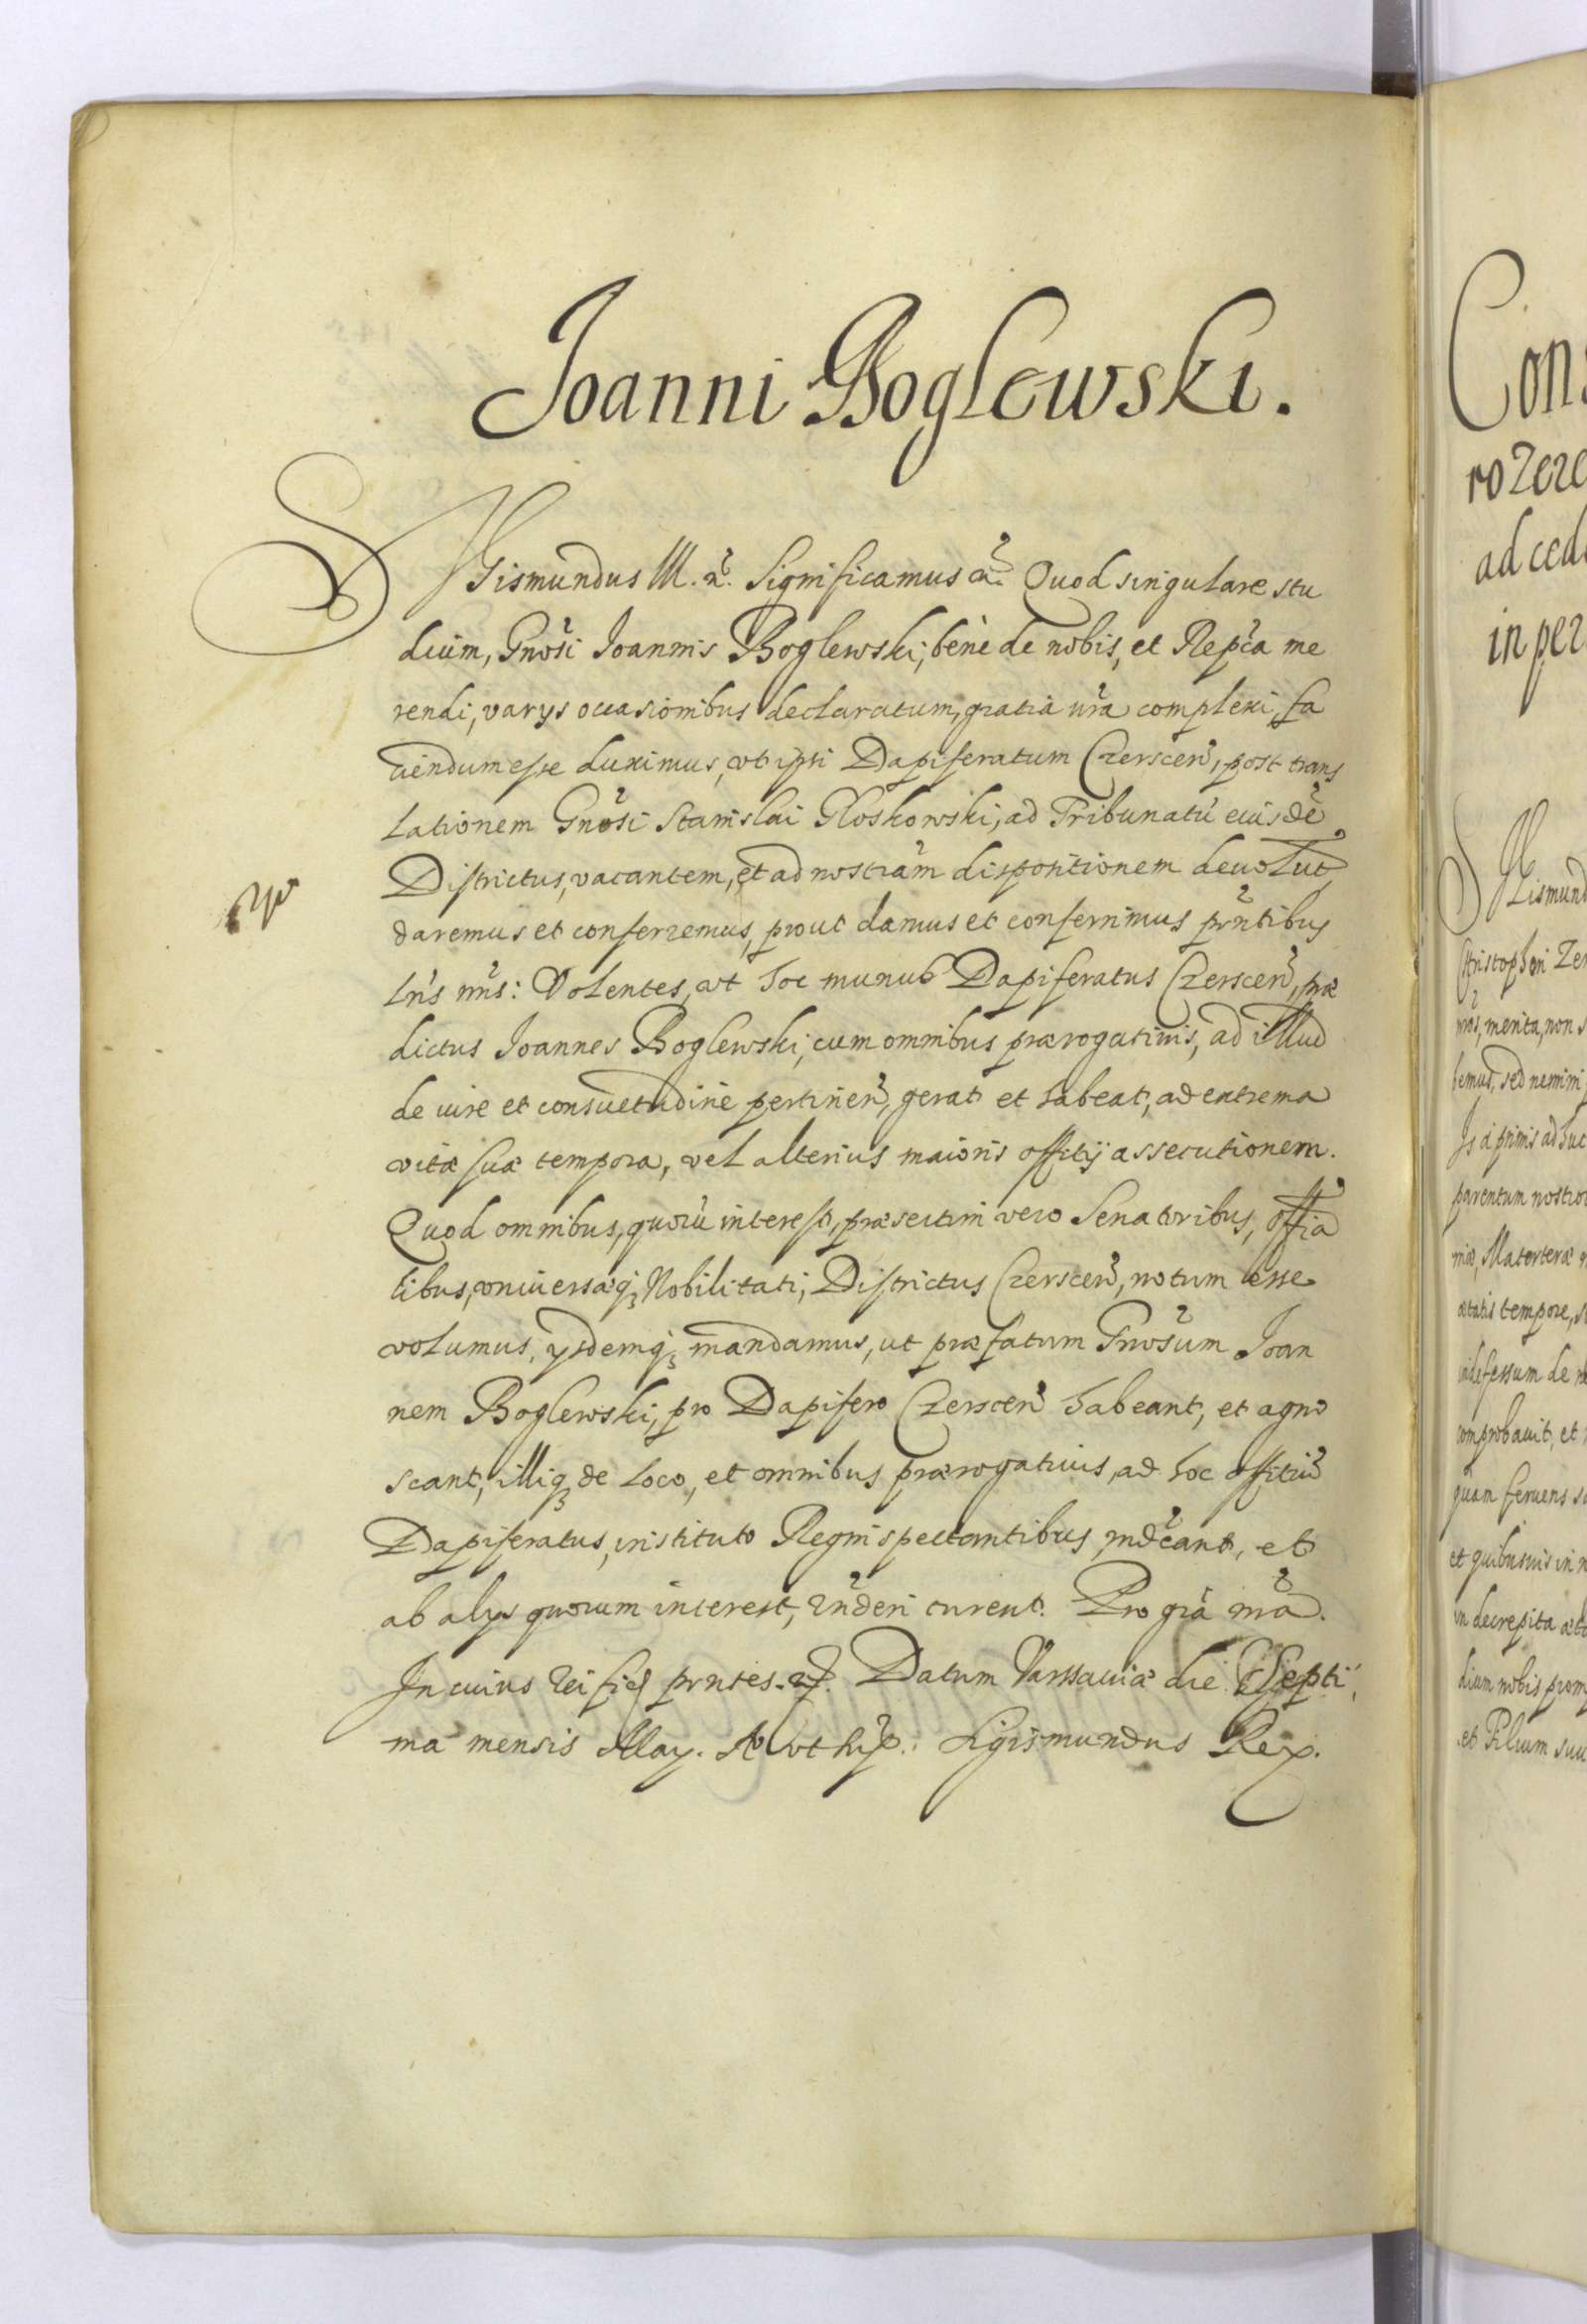 Joanni Boglewski.
SIgismundus III. etc. Significamus etc. Quod singulare stu
dium, Gnosi Joannis Boglewski, bene de nobis, et Repca me
rendi, varys occasionibus declaratum, gratia nra complexi, fa
ciendum esse duximus, vt ipsi Dapiferatum Czerscen, post trans
lationem Gnosi Stanislai Gloskowski, ad Tribunatu eiusde
Districtus, vacantem, et ad nostram dispositionem deuolut,
daremus et conferremus, prout damus et conferimus prntibus
Lris nris: Volentes, vt hoc munus Dapiferatus Czerscen, præ
dictus Joannes Boglewski, cum omnibus prærogatiuis, ad illud
de iure et consuetudine pertinen, gerat et habeat, ad extrema
vitæ suæ tempora, vel alterius maioris offitij assecutionem.
Quod omnibus, quoru interest, præsertim vero Senatoribus, offia
libus, vniuersæq; Nobilitati, Districtus Czerscen, notum esse
volumus, ysdemq; mandamus, ut præfatum Gnosum Joan
nem Boglewski, pro Dapifero Czerscen habeant, et agno
scant, illiq; de loco, et omnibus prærogatiuis, ad hoc offitiu
Dapiferatus, instituto Regni spectantibus rndeant, et
ab alys quorum interest, rnderi curent. Pro gra nra.
In cuius rei fid prntes. etc. Datum Varssauiæ die Septi,
ma mensis May. Ao vt sup. Sigismundus Rex.
Cons
rozere
ad ced
in per
SIgismund
Christophori Ze
nros, merita, non s
bemus, sed nemini
Is a primis adhuc
parentum nostror
niæ, Materteræ n
ætatis tempore, s
indefessum de n
comprobauit, et
quam feruens s
et quibusuis in n
in decrepita æta
dium nobis prom
et Filium suu